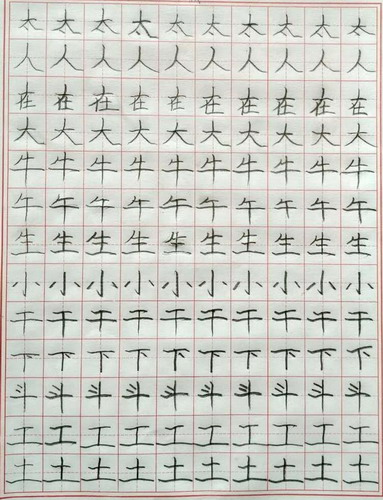 太太太太太太太太太太
人人人人人人人人人人
在在在在在在在在在在
大大大大大大大大大大
牛牛牛牛牛牛牛牛牛牛
午午午午午午午午午午
生生生生生生生生生生
小小小小小小小小小小
干干干干干干干干干干
下下下下下下下下下下
斗斗斗斗斗斗斗斗斗斗
工工工工工工工工工工
土土土土土土土土土土